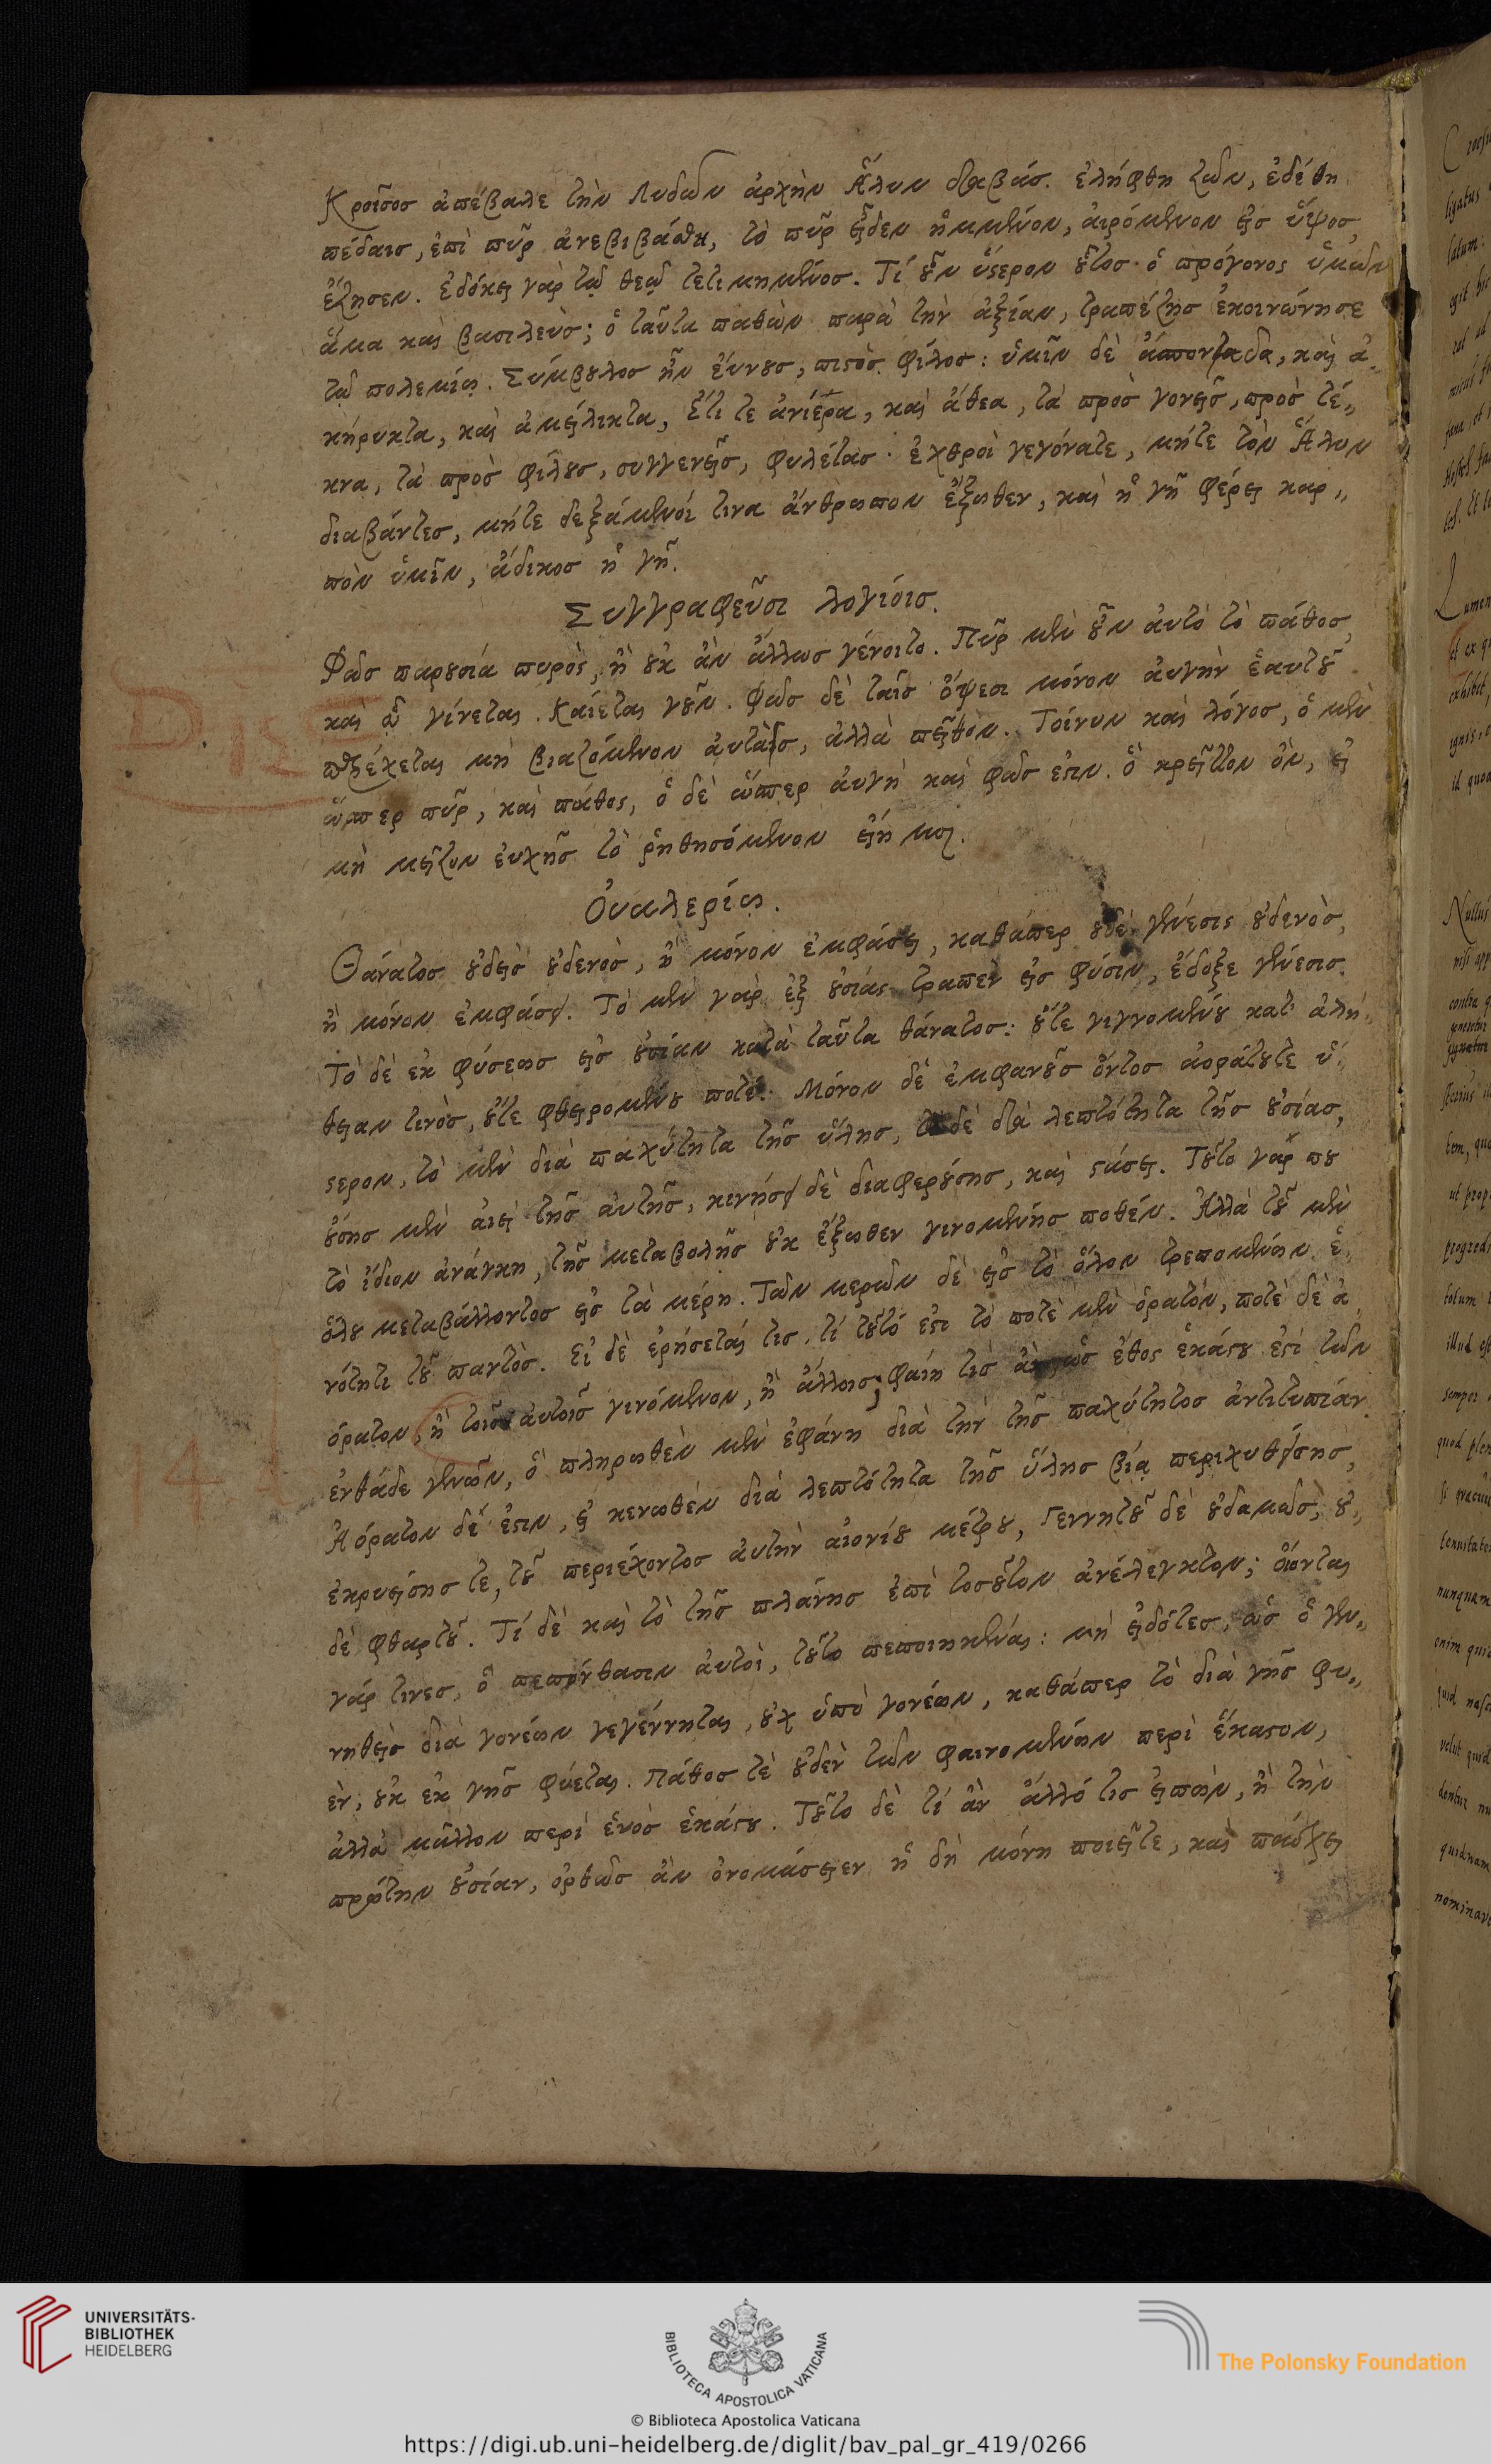 Κροῖσος ἀπέβαλε τὴν Λυδῶν ἀρχὴν Ἅλυν διαβάς. ἐλήφθη ζῶν, ἐδέθη
πέδαις, ἐπὶ πῦρ ἀνεβιβάσθη, τὸ πῦρ εἶδεν ἡμμένον, αἰρόμενον εἰς ὕψος,
ἔζησεν. ἐδόκει γὰρ τῷ θεῷ τετιμημένος. Τί οὖν ὕστερον οὗτος ὁ πρόγονος ὑμῶν
ἅμα καὶ βασιλεύς; ὁ ταῦτα παθὼν παρὰ τὴν ἀξίαν, τραπέζης ἐκοινώνησε
τῷ πολεμίῳ. Σύμβουλος ἦν εὔνους, πιστὸς φίλος: ὑμῖν δὲ ἄσπονδα, καὶ ἀ„
κήρυκτα, καὶ ἀμείλικτα, ἔτι τε ἀνίερα, καὶ ἄθεα, τὰ πρὸς γονεῖς, πρὸς τέ„
κνα, τὰ πρὸς φίλους, συγγενεῖς, φυλέτας· ἐχθροὶ γεγόνατε, μήτε τὸν Ἅλυν
διαβάντες, μήτε δεξάμενοί τινα ἄνθρωπον ἔξωθεν, καὶ ἡ γῆ φέρει καρ„
πὸν ὑμῖν, ἄδικος ἡ γῆ.
Συγγραφεῦσι λογίοις.
Φῶς παρουσία πυρὸς, ἢ οὐκ ἂν ἄλλως γένοιτο. Πῦρ μὲν οὖν αὐτὸ τὸ πάθος,
καὶ ᾧ γίνεται. Καίεται γοῦν. Φῶς δὲ ταῖς ὄψεσι μόνον αὐγὴν ἑαυτοῦ
παρέχεται μὴ βιαζόμενον αὐτὰς, ἀλλὰ πεῖθον. Τοίνυν καὶ λόγος, ὁ μὲν
ὥσπερ πῦρ, καὶ πάθος, ὁ δὲ ὥσπερ αὐγὴ καὶ φῶς ἐστιν. ὃ κρεῖττον ὂν, εἰ
μὴ μεῖζον εὐχῆς τὸ ῥηθησόμενον εἴη μοι.
Οὐαλερίῳ.
Θάνατος οὐδεὶς οὐδενὸς, ἢ μόνον ἐμφάσει, καθάπερ οὐδὲ γένεσις οὐδενὸς,
ἢ μόνον ἐμφάσει. Τὸ μὲν γὰρ ἐξ οὐσίας τραπὲν εἰς φύσιν, ἔδοξε γένεσις.
Τὸ δὲ ἐκ φύσεως εἰς οὐσίαν κατὰ ταῦτα θάνατος: οὔτε γιγνομένου κατ' ἀλή„
θειαν τινὸς, οὔτε φθειρομένου ποτέ. Μόνον δὲ ἐμφανοῦς ὄντος ἀοράτου τε ὕ„
στερον, τὸ μὲν διὰ παχύτητα τῆς ὕλης, τὸ δὲ διὰ λεπτότητα τῆς οὐσίας,
οὔσης μὲν αἰεὶ τῆς αὐτῆς, κινήσει δὲ διαφερούσης, καὶ στάσει. Τοῦτο γάρ που
τὸ ἴδιον ἀνάγκη, τῆς μεταβολῆς οὐκ ἔξωθεν γινομένης ποθέν. Ἀλλὰ τοῦ μὲν
ὅλου μεταβάλλοντος εἰς τὰ μέρη. Τῶν μερῶν δὲ εἰς τὸ ὅλον τρεπομένων ἑ„
νότητι τοῦ παντὸς. Εἰ δὲ ἐρήσεταί τις, τί τοῦτό ἐστι τὸ ποτὲ μὲν ὁρατὸν, ποτὲ δὲ ἀ„
όρατον, ἢ τοῖς αὐτοῖς γινόμενον, ἢ ἄλλοις; φαίη τις ἂν, ὡς ἔθος ἑκάστου ἐστὶ τῶν
ἐνθάδε γενῶν, ὃ πληρωθὲν μὲν ἐφάνη διὰ τὴν τῆς παχύτητος ἀντιτυπίαν.
Ἀόρατον δέ ἐστιν, εἰ κενωθὲν διὰ λεπτότητα τῆς ὕλης βίᾳ περιχυθείσης,
ἐκρυείσης τε, τοῦ περιέχοντος αὐτὴν αἰονίου μέτρου, Γεννητοῦ δὲ οὐδαμῶς, οὐ„
δὲ φθαρτοῦ. Τί δὲ καὶ τὸ τῆς πλάνης ἐπὶ τοσοῦτον ἀνέλεγκτον; οἴονται
γάρ τινες, ὃ πεπόνθασιν αὐτοὶ, τοῦτο πεποιηκέναι: μὴ εἰδότες, ὡς ὁ γεν„
νηθεὶς διὰ γονέων γεγέννηται, οὐχ ὑπὸ γονέων, καθάπερ τὸ διὰ γῆς φυ„
ὲν, οὐκ ἐκ γῆς φύεται. Πάθος τὲ οὐδὲν τῶν φαινομένων περὶ ἕκαστον,
ἀλλὰ μᾶλλον περὶ ἑνὸς ἑκάστου. Τοῦτο δὲ τί ἂν ἄλλό τις εἰπὼν, ἢ τὴν
πρώτην οὐσίαν, ὀρθῶς ἂν ὀνομάσειεν ἣ δὴ μόνη ποιεῖ τε, καὶ πάσχει
UNIVERSITÄTS-
BIBLIOTHEK
HEIDELBERG
BIBLIOTECA APOSTOLICA VATICANA
The Polonsky Foundation
© Biblioteca Apostolica Vaticana
https://digi.ub.uni-heidelberg.de/diglit/bav_pal_gr_419/0266